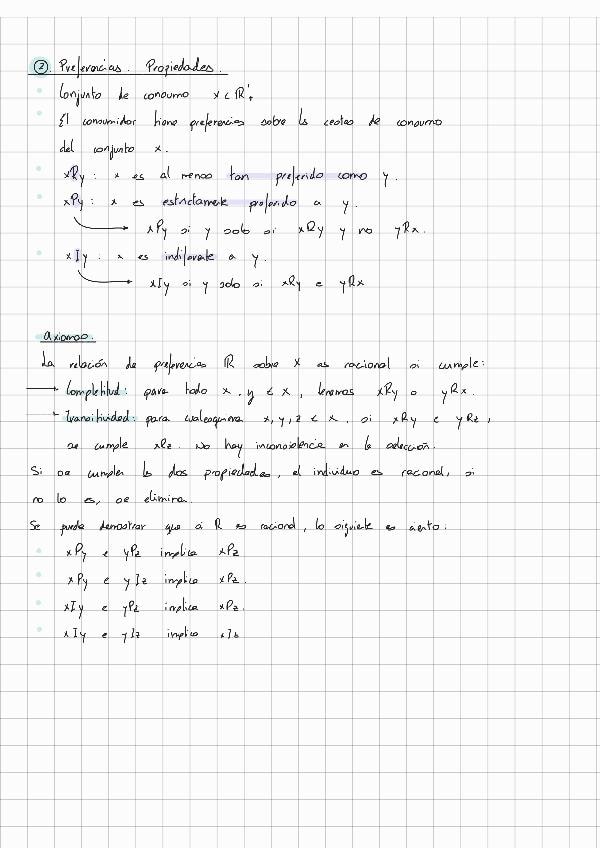 ②. Preferencias. Propiedades.
Conjunto de consumo x ⊂ ℝ'₊
El consumidor tiene preferencias sobre ls cestas de consumo
del conjunto x.
xRy : x es al menos tan preferido como y.
xPy : x es estrictamente preferido a y.
xPy si y solo si xRy y no yRx.
xIy . x es indiferente a y.
xIy si y solo si xRy e yRx
axiomas.
La relación de preferencias R sobre X es racional si cumple:
Completitud: para todo x, y ∈ x, tenemos xRy o yRx.
Transitividad: para cualesquiera x, y, z ∈ x, si xRy e yRz,
se cumple xRz. No hay inconsistencia en la elección.
Si se cumplen ls dos propiedades, el individuo es racional, si
no lo es, se elimina.
Se puede demostrar que si R es racional, lo siguiente es cierto:
xPy e yPz implica xPz
xPy e yIz implica xPz.
xIy e yPz implica xPz.
xIy e yIz implica xIz